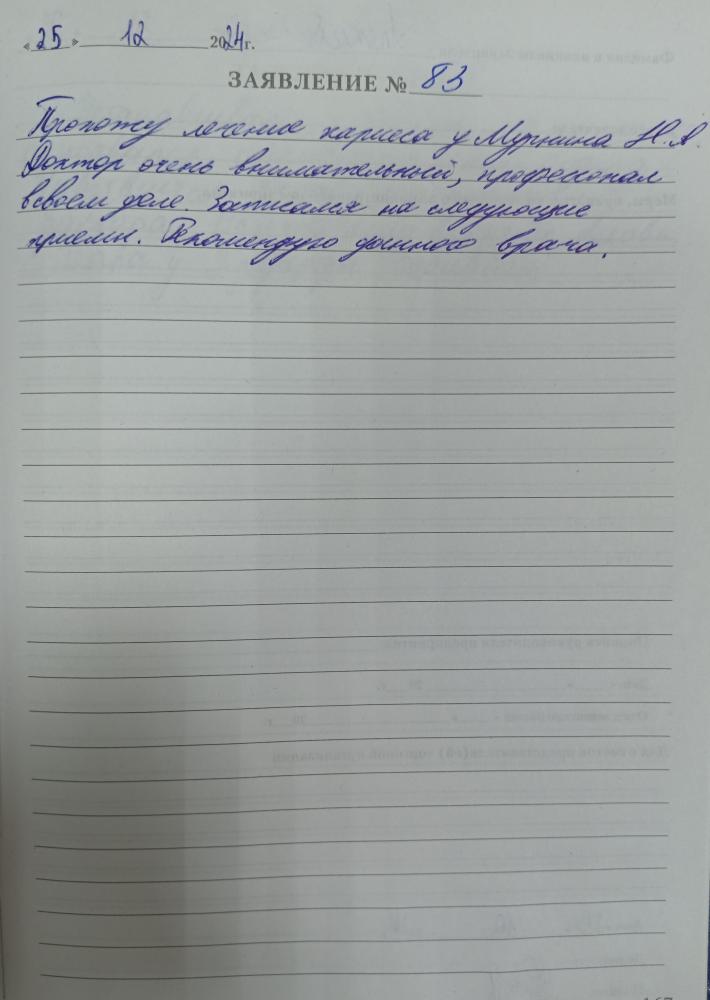 «25» 12 2024г.
ЗАЯВЛЕНИЕ № 83
Прохожу лечение кариеса у Мурнина Н.А.
Доктор очень внимательный, профессионал
в своем деле. Записался на следующие
приемы. Рекомендую данного врача.